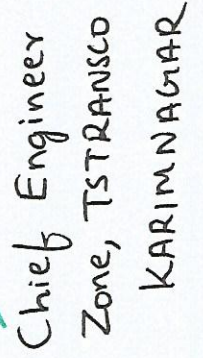 Chief Engineer
Zone, TSTRANSCO
KARIMNAGAR